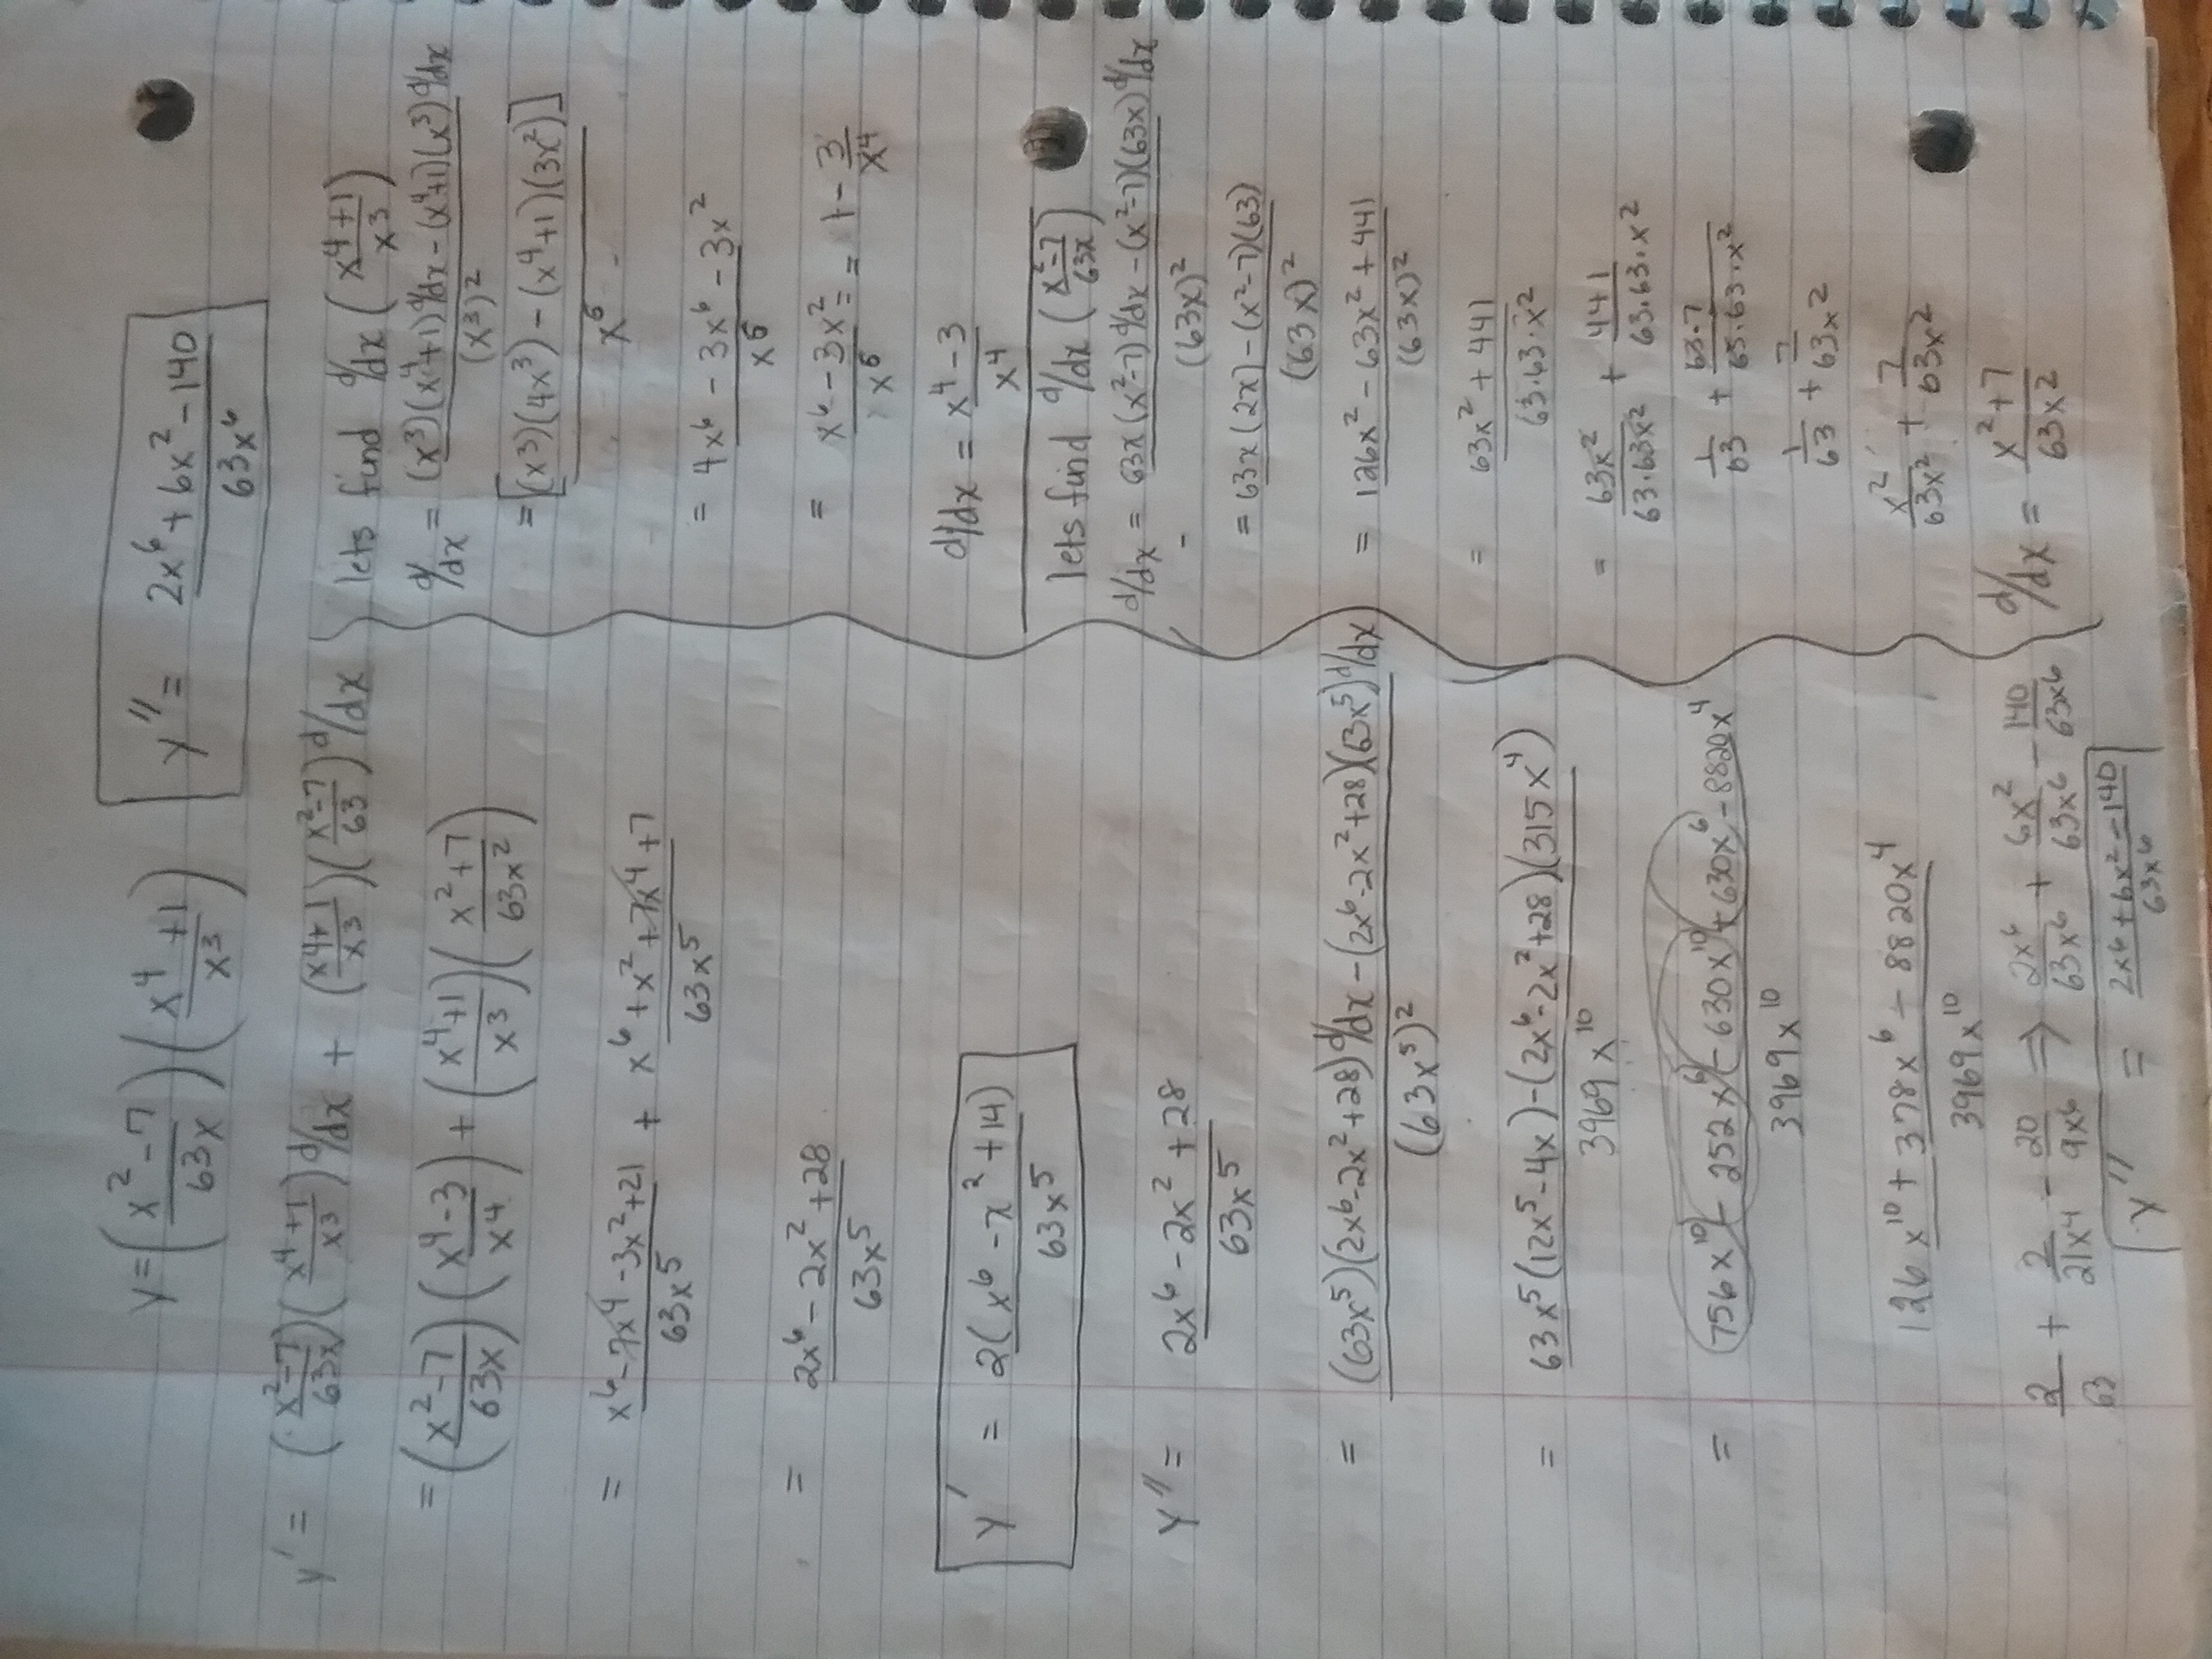 y = ((x² - 7)/(63x)) ((x⁴ + 1)/(x³))
y'' = (2x⁶ + 6x² - 140)/(63x⁶)
y' = ((x² - 7)/(63x)) ((x⁴ + 1)/(x³)) d/dx + ((x⁴ + 1)/(x³)) ((x² - 7)/(63)) d/dx
= ((x² - 7)/(63x)) ((x⁴ - 3)/(x⁴)) + ((x⁴ + 1)/(x³)) ((x² + 7)/(63x²))
= (x⁶ - 7x⁴ - 3x² + 21)/(63x⁵) + (x⁶ + x² + 7x⁴ + 7)/(63x⁵)
= (2x⁶ - 2x² + 28)/(63x⁵)
y' = 2(x⁶ - x² + 14)/(63x⁵)
y'' = (2x⁶ - 2x² + 28)/(63x⁵)
= ((63x⁵)(2x⁶ - 2x² + 28) d/dx - (2x⁶ - 2x² + 28)(63x⁵) d/dx)/((63x⁵)²)
= (63x⁵(12x⁵ - 4x) - (2x⁶ - 2x² + 28)(315x⁴))/(3969x¹⁰)
= (756x¹⁰ - 252x⁶ - 630x¹⁰ + 630x⁶ - 8820x⁴)/(3969x¹⁰)
(126x¹⁰ + 378x⁶ - 8820x⁴)/(3969x¹⁰)
2/63 + 2/(21x⁴) - 20/(9x⁶) ⇒ 2x⁶/(63x⁶) + 6x²/(63x⁶) - 140/(63x⁶)
y'' = (2x⁶ + 6x² - 140)/(63x⁶)
lets find d/dx ((x⁴ + 1)/(x³))
d/dx = ((x³)(x⁴+1) d/dx - (x⁴+1)(x³) d/dx)/((x³)²)
= [(x³)(4x³) - (x⁴+1)(3x²)]/(x⁶)
= (4x⁶ - 3x⁶ - 3x²)/(x⁶)
= (x⁶ - 3x²)/(x⁶) = = 1 - 3/(x⁴)
d/dx = (x⁴ - 3)/(x⁴)
lets find d/dx ((x² - 7)/(63x))
d/dx = (63x(x²-7) d/dx - (x²-7)(63x) d/dx)/((63x)²)
= (63x(2x) - (x²-7)(63))/((63x)²)
= (126x² - 63x² + 441)/((63x)²)
= (63x² + 441)/(63·63·x²)
= 63x²/(63·63x²) + 441/(63·63·x²)
1/63 + (63·7)/(63·63·x²)
1/63 + 7/(63x²)
x²/(63x²) + 7/(63x²)
d/dx = (x² + 7)/(63x²)